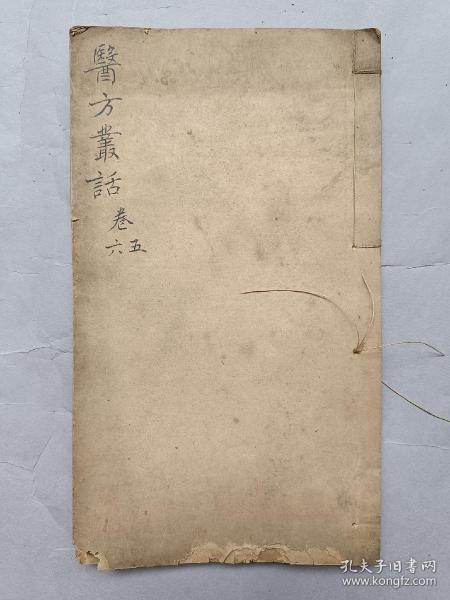 醫方叢話
卷五六
孔夫子旧书网
www.kongfz.com